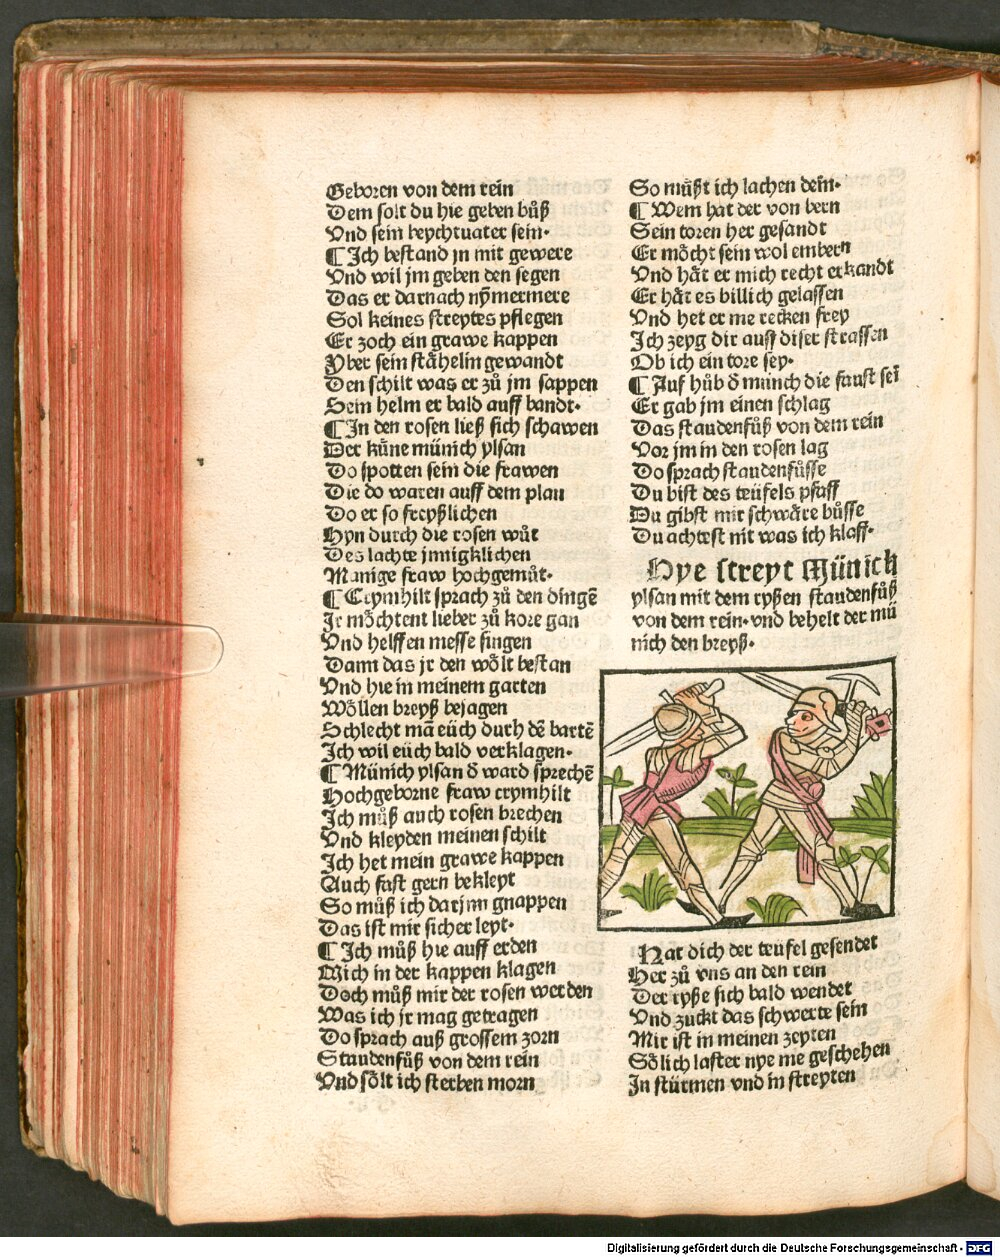 Geboren von dem rein
Dem solt du hie geben bůß
Vnd sein beychtuater sein·
¶ Ich bestand jn mit gewere
Vnd wil jm geben den segen
Das er darnach nym̄ermere
Sol keines streytes pflegen
Er zoch ein grawe kappen
Yber sein stähelin gewandt
Den schilt was er zů jm sappen
Sein helm er bald auff bandt·
¶ In den rosen ließ sich schawen
Der küne münich ylsan
Do spotten sein die frawen
Die do waren auff dem plan
Do er so freyßlichen
Hyn durch die rosen wůt
Des lachte jnnigklichen
Manige fraw hochgemůt·
¶ Crymhilt sprach zů den dingē
Ir möchtent lieber zů kore gan
Vnd helffen messe singen
Dann das jr den wölt bestan
Vnd hie in meinem garten
Wöllen breyß bejagen
Schlecht mā eüch durh dē bartē
Ich wil eüch bald verklagen·
¶ Münich ylsan d ward sprechē
Hochgeborne fraw crymhilt
Ich můß auch rosen brechen
Vnd kleyden meinen schilt
Ich het mein grawe kappen
Auch fast gern bekleyt
So můß ich darjnn gnappen
Das ist mir sicher leyt·
¶ Ich můß hie auff erden
Mich in der kappen klagen
Doch můß mir der rosen werden
Was ich jr mag getragen
Do sprach auß grossem zorn
Staudenfůß von dem rein
Vnd sölt ich sterben morn
So můßt ich lachen dein·
¶ Wem hat der von bern
Sein toren her gesandt
Er möcht sein wol embern
Vnd hät er mich recht erkandt
Er hät es billich gelassen
Vnd het er me recken frey
Ich zeyg dir auff diser strassen
Ob ich ein tore sey·
¶ Auf hůb d münch die faust sei
Er gab jm einen schlag
Das staudenfůß von dem rein
Vor jm in den rosen lag
Do sprach staudenfůsse
Du bist des teüfels pfaff
Du gibst mir schwäre bůsse
Du achtest nit was ich klaff·
Hye streyt Münich
ylsan mit dem ryßen staudenfůß
von dem rein· vnd behelt der mü
nich den breyß·
Hat dich der teufel gesendet
Her zů vns an den rein
Der ryße sich bald wendet
Vnd zuckt das schwerte sein
Mir ist in meinen zeyten
Sölich laster nye me geschehen
In stürmen vnd in streyten
Digitalisierung gefördert durch die Deutsche Forschungsgemeinschaft - DFG